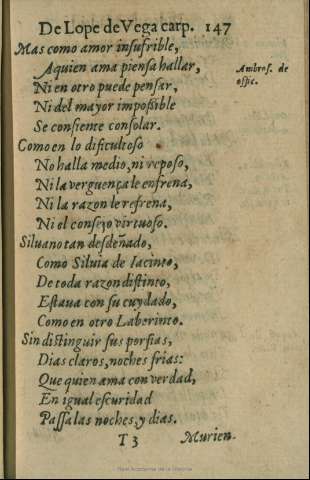 De Lope de Vega carp. 147
Mas como amor insufrible,
A quien ama piensa hallar,
Ambros. de
offic.
Ni en otro puede pensar,
Ni del mayor impossible
Se consiente consolar.
Como en lo dificultoso
No halla medio, ni reposo,
Ni la verguença le enfrena,
Ni la razon le refrena,
Ni el consejo virtuoso.
Siluano tan desdeñado,
Como Siluia de Iacinto,
De toda razon distinto,
Estaua con su cuydado,
Como en otro Laberinto.
Sin distinguir sus porfias,
Dias claros, noches frias:
Que quien ama con verdad,
En igual escuridad
Passa las noches, y dias.
T 3
Murien-
Real Academia de la Historia